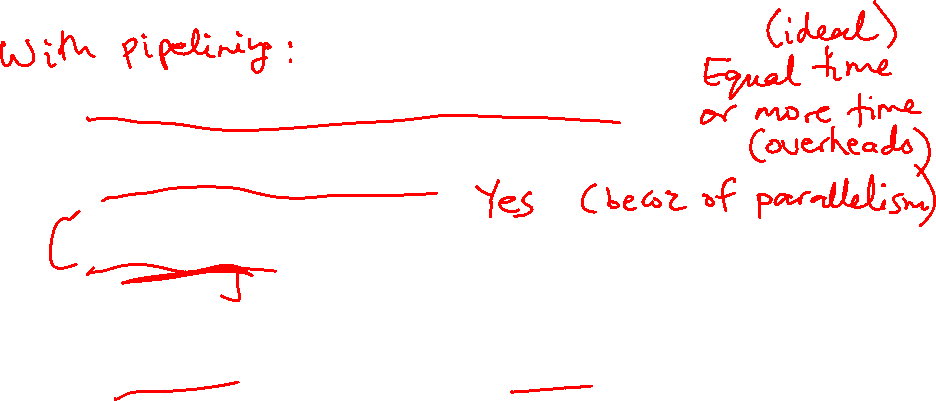 With pipelining:
(ideal)
Equal time
or more time
(overheads)
Yes (becoz of parallelism)